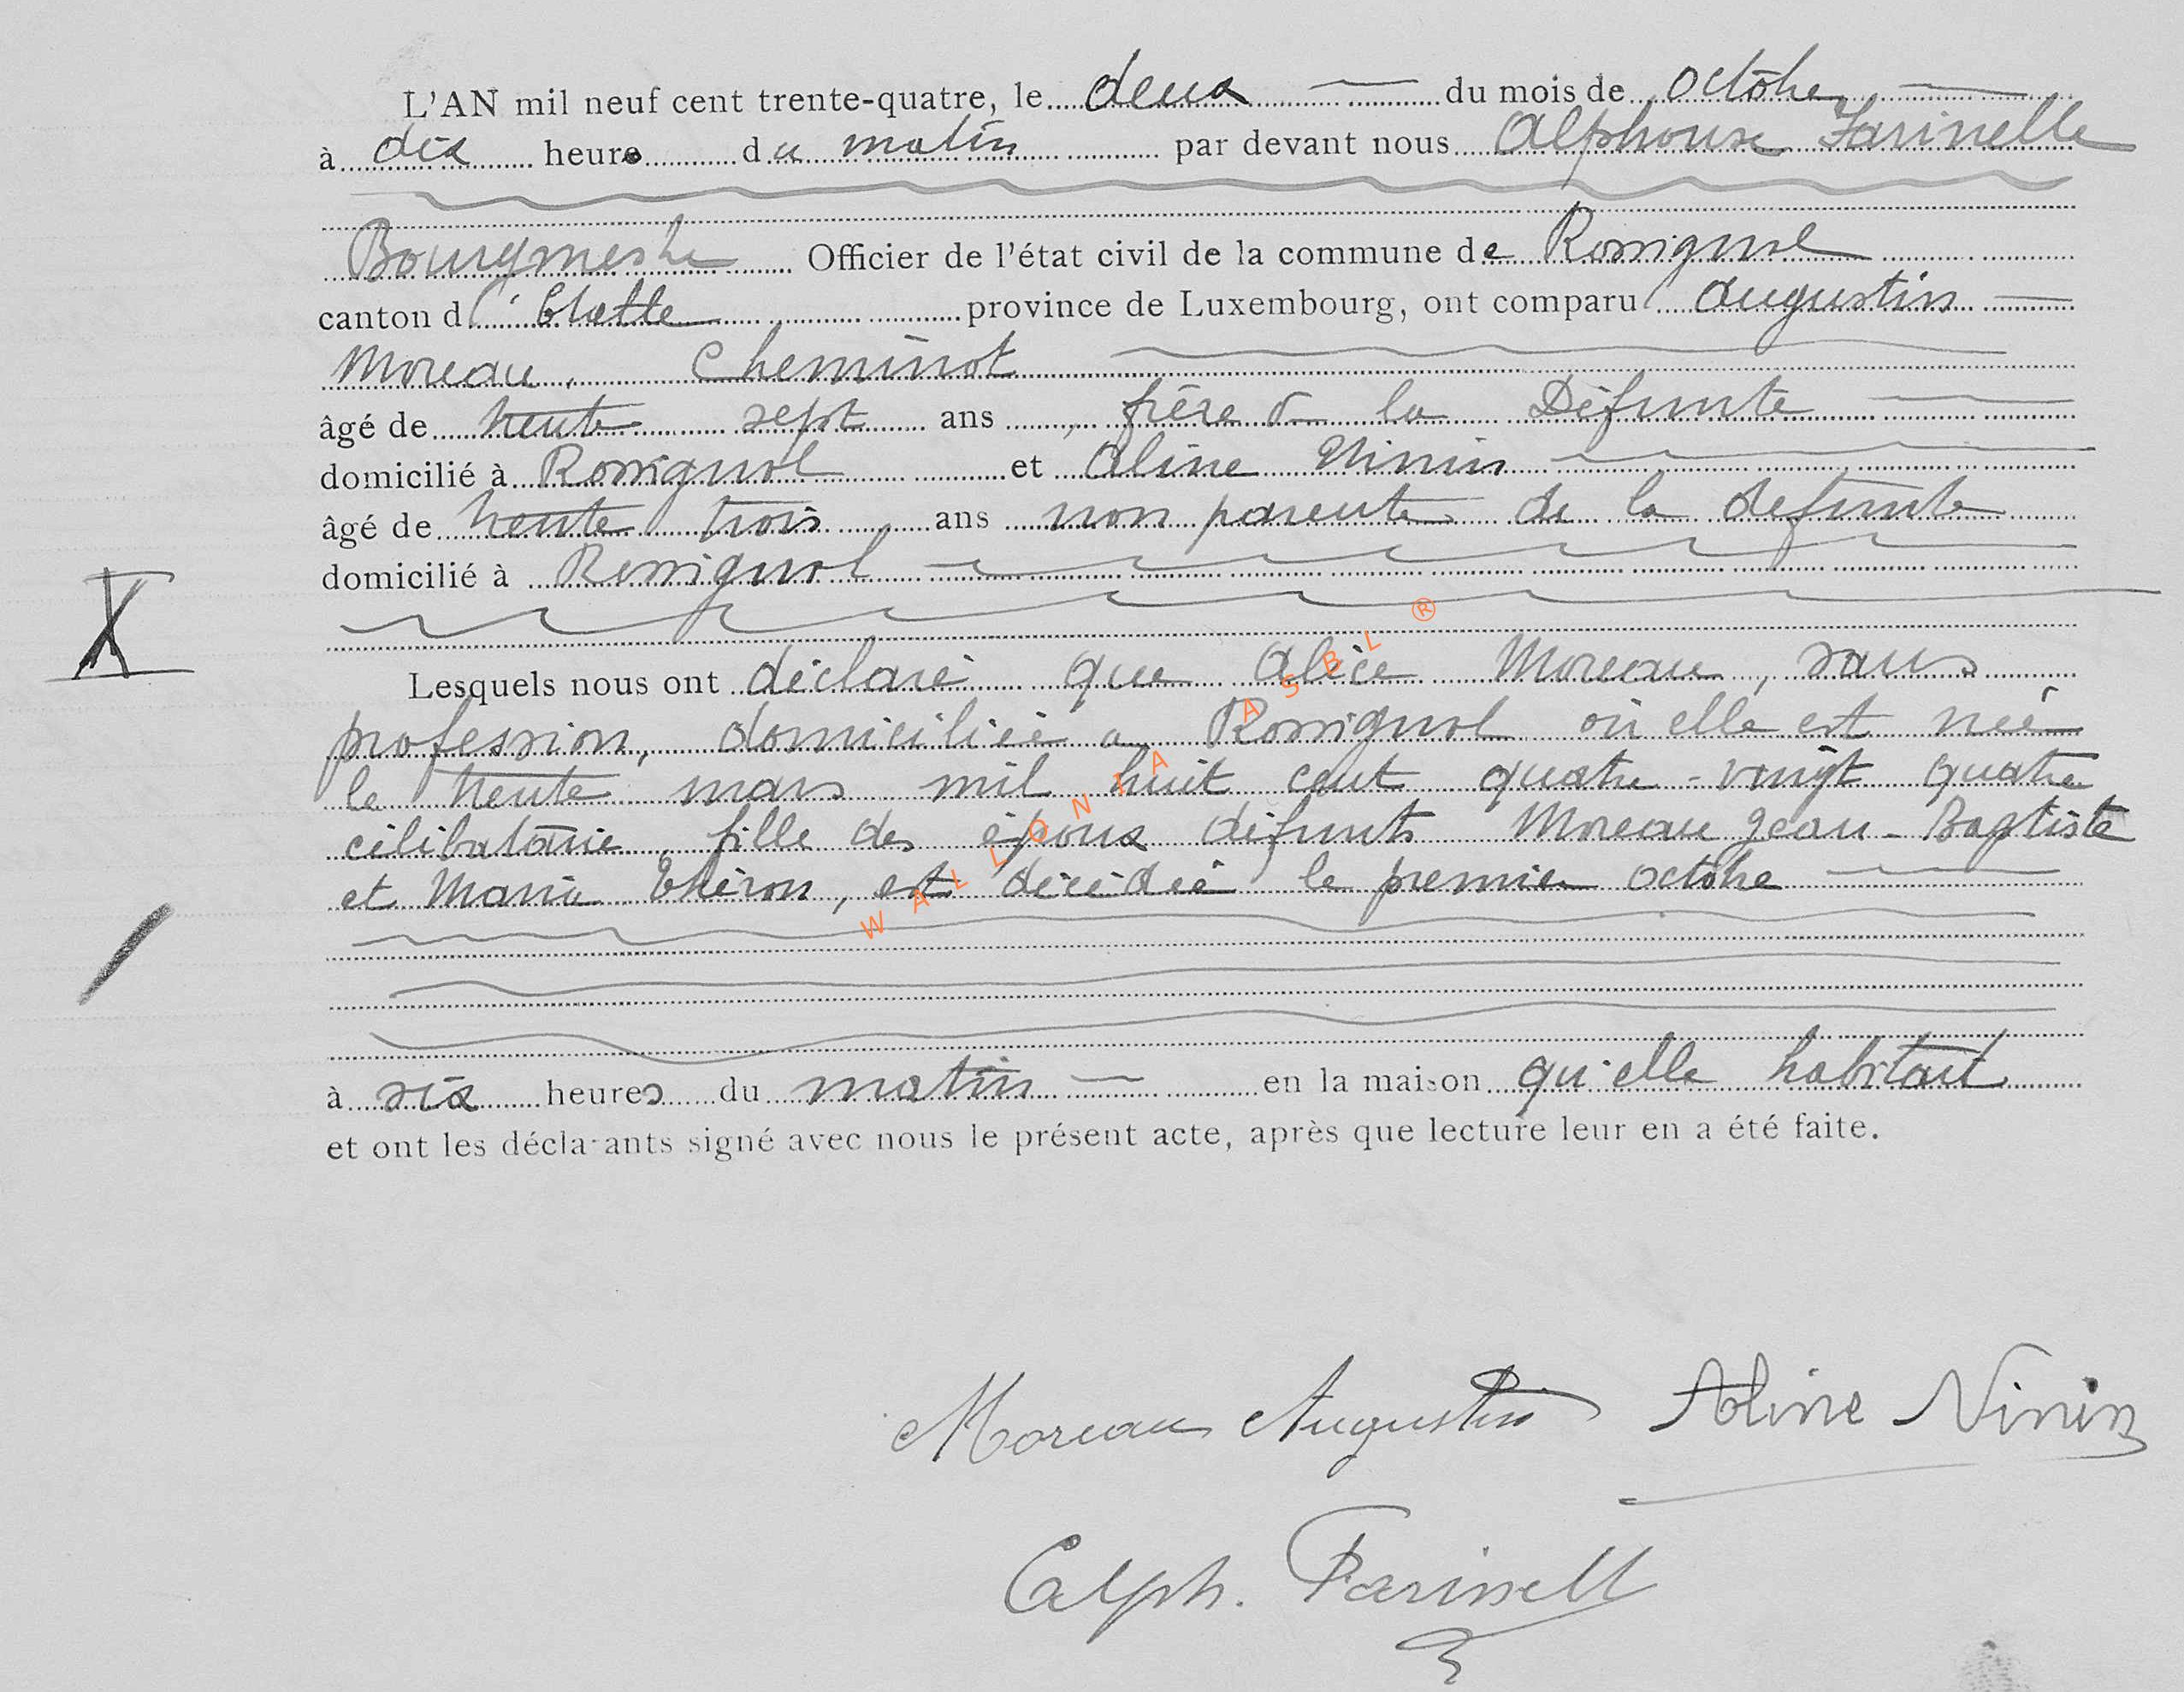 L'AN mil neuf cent trente-quatre, le deux du mois de octobre
à dix heures du matin par devant nous Alphonse Farinelle
Bourgmestre Officier de l'état civil de la commune de Rossignol
canton d'Etalle province de Luxembourg, ont comparu Augustin
Moreau, Cheminot
âgé de trente sept ans, frère de la Défunte
domicilié à Rossignol et Aline Ninin
âgé de trente trois ans non parente de la défunte
domicilié à Rossignol
X
Lesquels nous ont déclaré que Alice Moreau, sans
profession, domiciliée à Rossignol où elle est née
le trente mars mil huit cent quatre-vingt quatre
célibataire, fille des époux défunts Moreau Jean-Baptiste
et Maria Théron, est décédée le premier octobre
à six heures du matin en la maison qu'elle habitait
et ont les déclarants signé avec nous le présent acte, après que lecture leur en a été faite.
Moreau Augustin Aline Ninin
Alph. Farinelle
WALLONIA ASBL ®